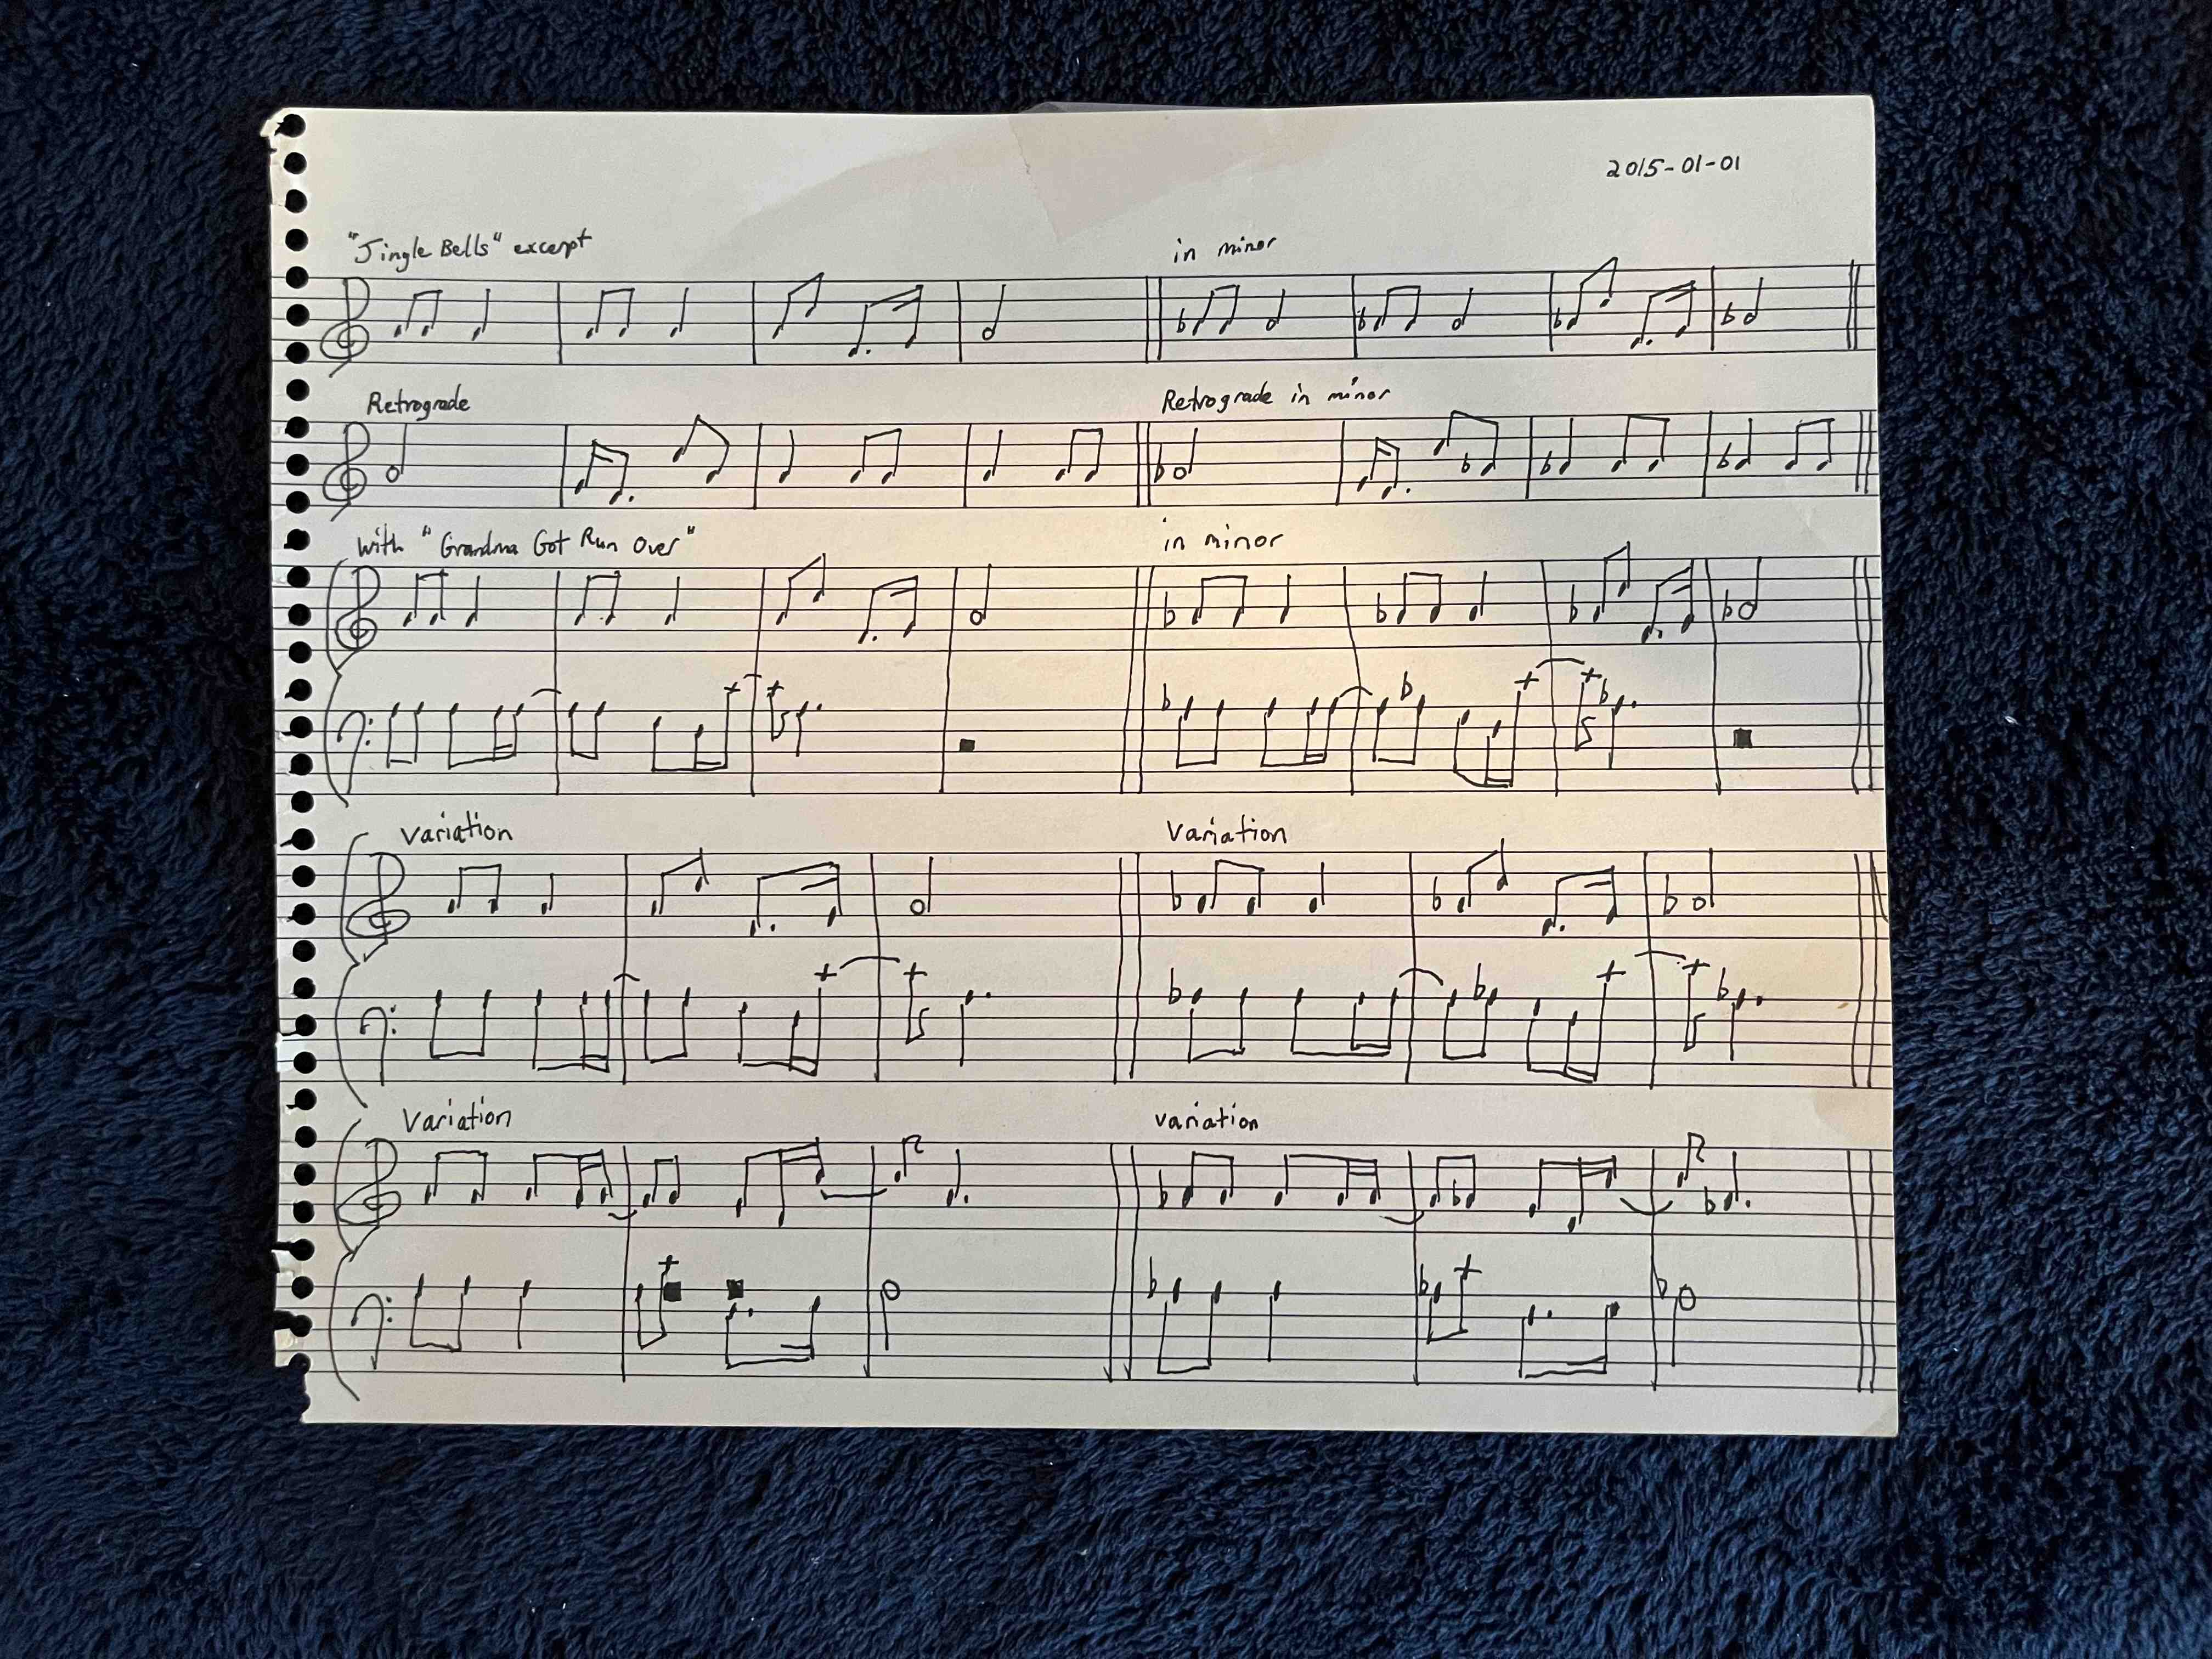 2015-01-01
"Jingle Bells" excerpt
in minor
Retrograde
Retrograde in minor
with "Grandma Got Run Over"
in minor
Variation
Variation
Variation
variation